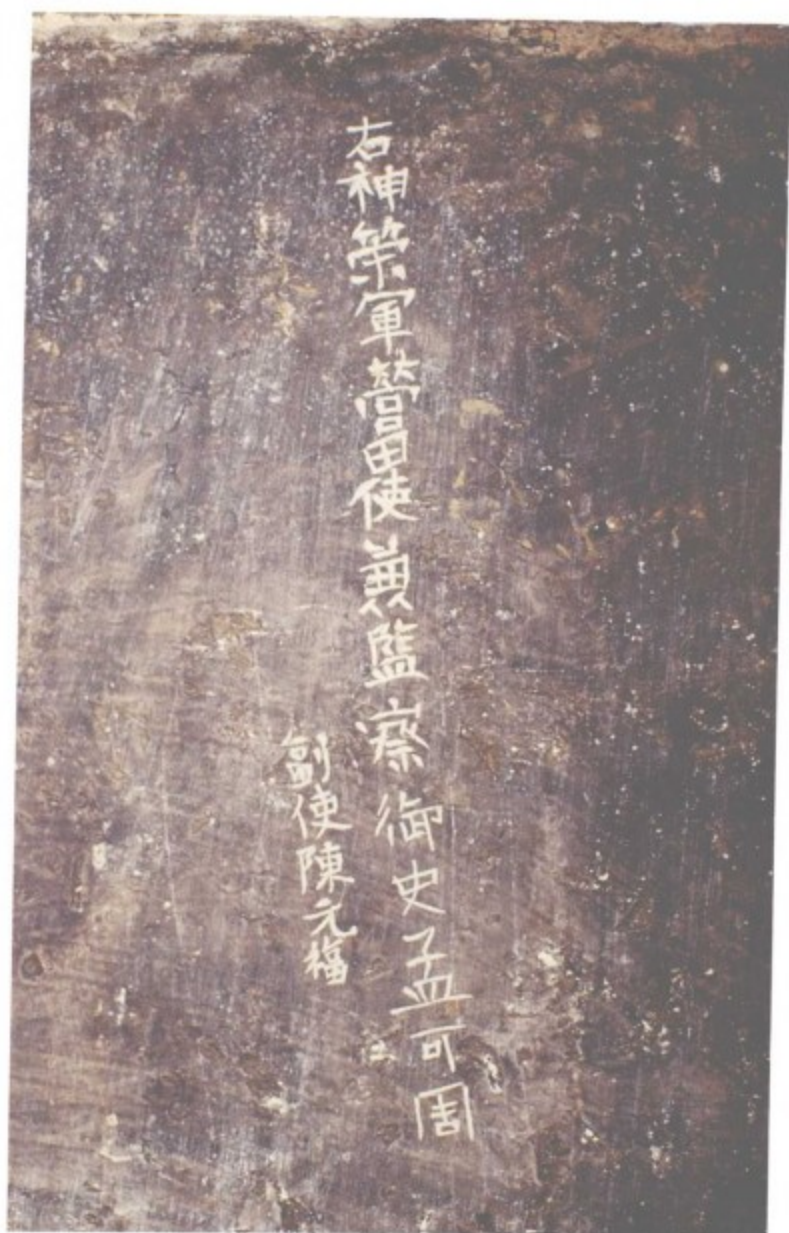 右神策軍營田使兼監察御史孟可周
副使陳元福